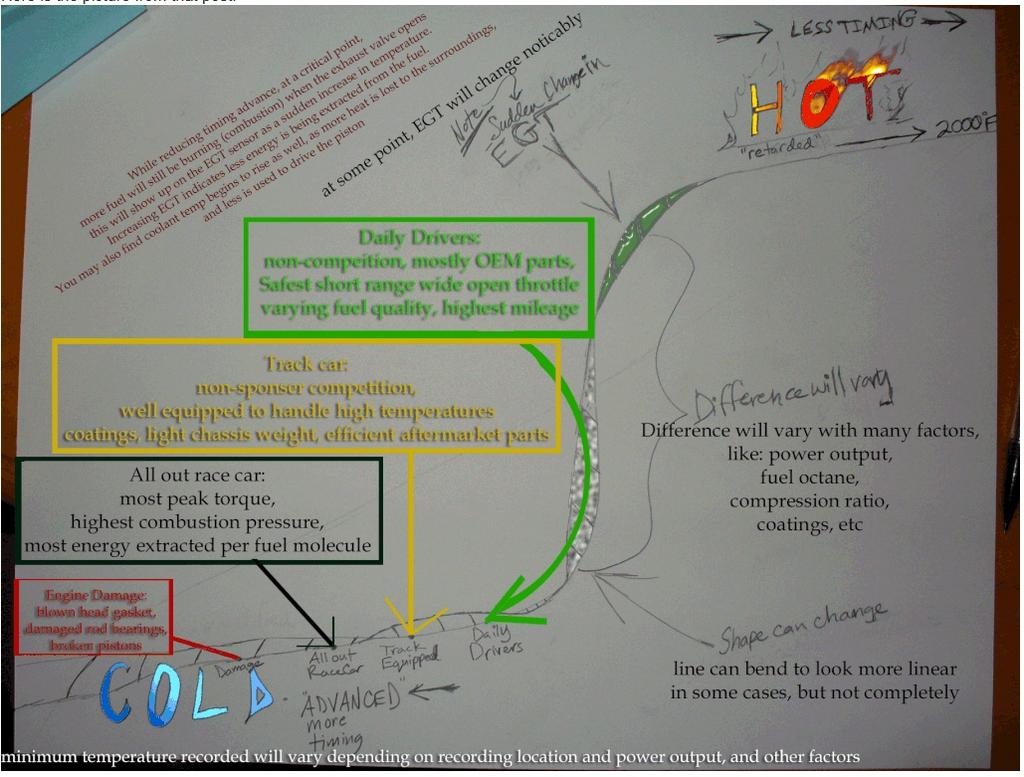 Here is the picture from that post.
While reducing timing advance, at a critical point,
more fuel will still be burning (combustion) when the exhaust valve opens
this will show up on the EGT sensor as a sudden increase in temperature.
Increasing EGT indicates less energy is being extracted from the fuel.
You may also find coolant temp begins to rise as well, as more heat is lost to the surroundings,
and less is used to drive the piston
at some point, EGT will change noticably
Note:
Sudden Change in
EGT
LESS TIMING
HOT
"retarded"
2000°F
Daily Drivers:
non-compeition, mostly OEM parts,
Safest short range wide open throttle
varying fuel quality, highest mileage
Track car:
non-sponser competition,
well equipped to handle high temperatures
coatings, light chassis weight, efficient aftermarket parts
Difference will vary
Difference will vary with many factors,
like: power output,
fuel octane,
compression ratio,
coatings, etc
All out race car:
most peak torque,
highest combustion pressure,
most energy extracted per fuel molecule
Engine Damage:
blown head gasket,
damaged rod bearings,
broken pistons
Damage
All out
RaceCar
Track
Equipped
Daily
Drivers
Shape can change
line can bend to look more linear
in some cases, but not completely
COLD
"ADVANCED"
more
timing
minimum temperature recorded will vary depending on recording location and power output, and other factors